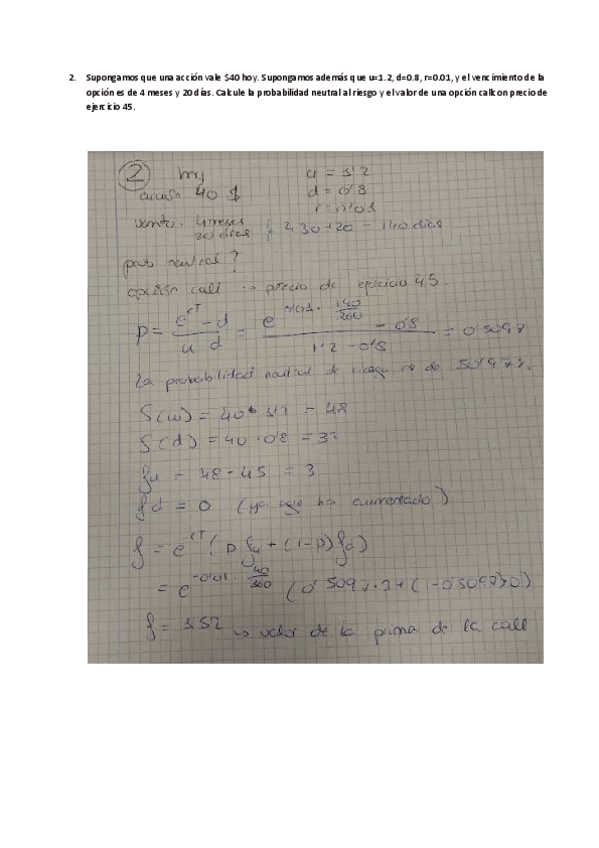 2. Supongamos que una acción vale $40 hoy. Supongamos además que u=1.2, d=0.8, r=0.01, y el vencimiento de la
opción es de 4 meses y 20 días. Calcule la probabilidad neutral al riesgo y el valor de una opción call con precio de
ejercicio 45.
2 hoy u = 1'2
acción 40 $ d = 0'8
r = 0'01
vento. 4 meses
20 dias 4·30+20 = 140 dias
prob neutral?
opción call → precio de ejercicio 45.
p = e^rT - d / u d = e^0'01 · 140/360 - 0'8 / 1'2 - 0'8 = 0'5097
La probabilidad neutral de riesgo es de 50'97%.
S(u) = 40 · 1'2 = 48
S(d) = 40 · 0'8 = 32
fu = 48 - 45 = 3
fd = 0 (ya que ha aumentado)
f = e^-rT (p fu + (1-p) fd)
= e^-0'01 · 140/360 (0'5097·3 + (1-0'5097)·0)
f = 1'52 → valor de la prima de la call